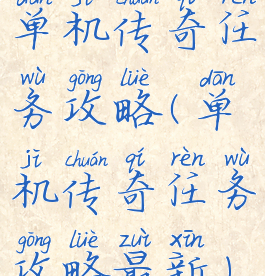 dān jī chuán qí rèn
单机传奇任
wù gōng lüè dān
务攻略(单
jī chuán qí rèn wù
机传奇任务
gōng lüè zuì xīn
攻略最新)